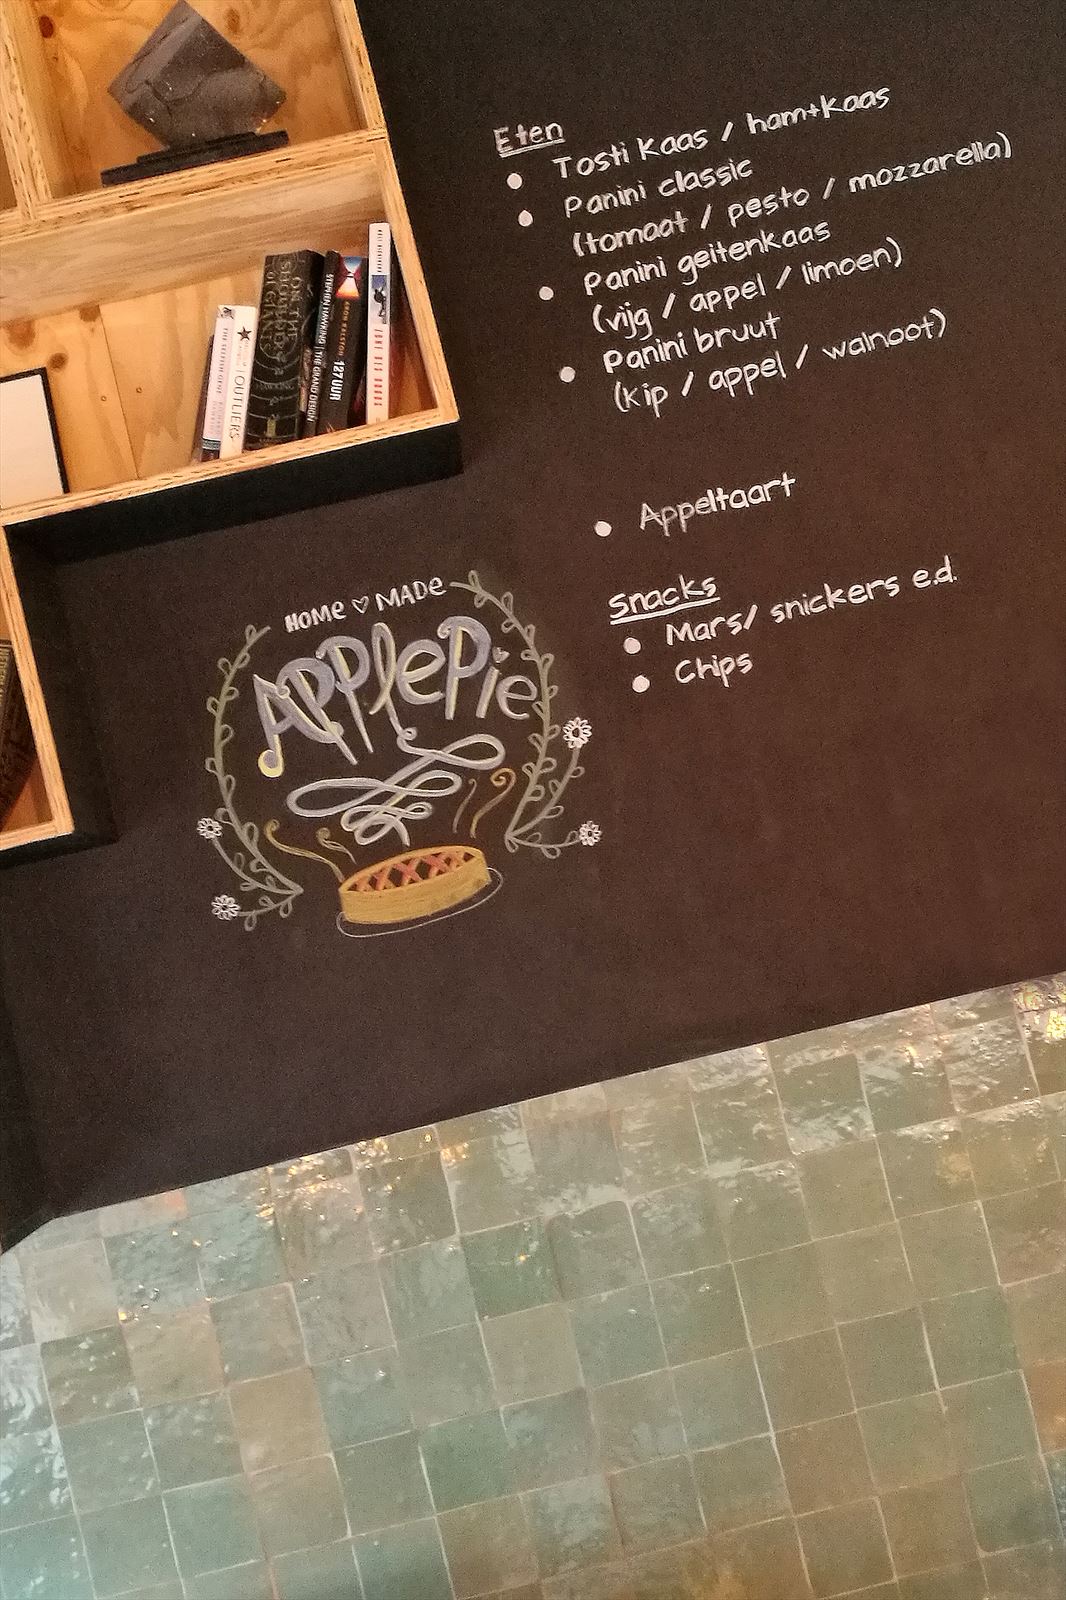 Eten
• Tosti kaas / ham+kaas
• Panini classic
(tomaat / pesto / mozzarella)
• Panini geitenkaas
(vijg / appel / limoen)
• Panini bruut
(kip / appel / walnoot)
• Appeltaart
snacks
• Mars/ snickers e.d.
• Chips
HOME ♡ MADE
APPlePie
THE SELFISH GENE
OUTLIERS
ON THE SHOULDERS OF GIANTS
STEPHEN HAWKING | THE GRAND DESIGN
ARON RALSTON 127 UUR